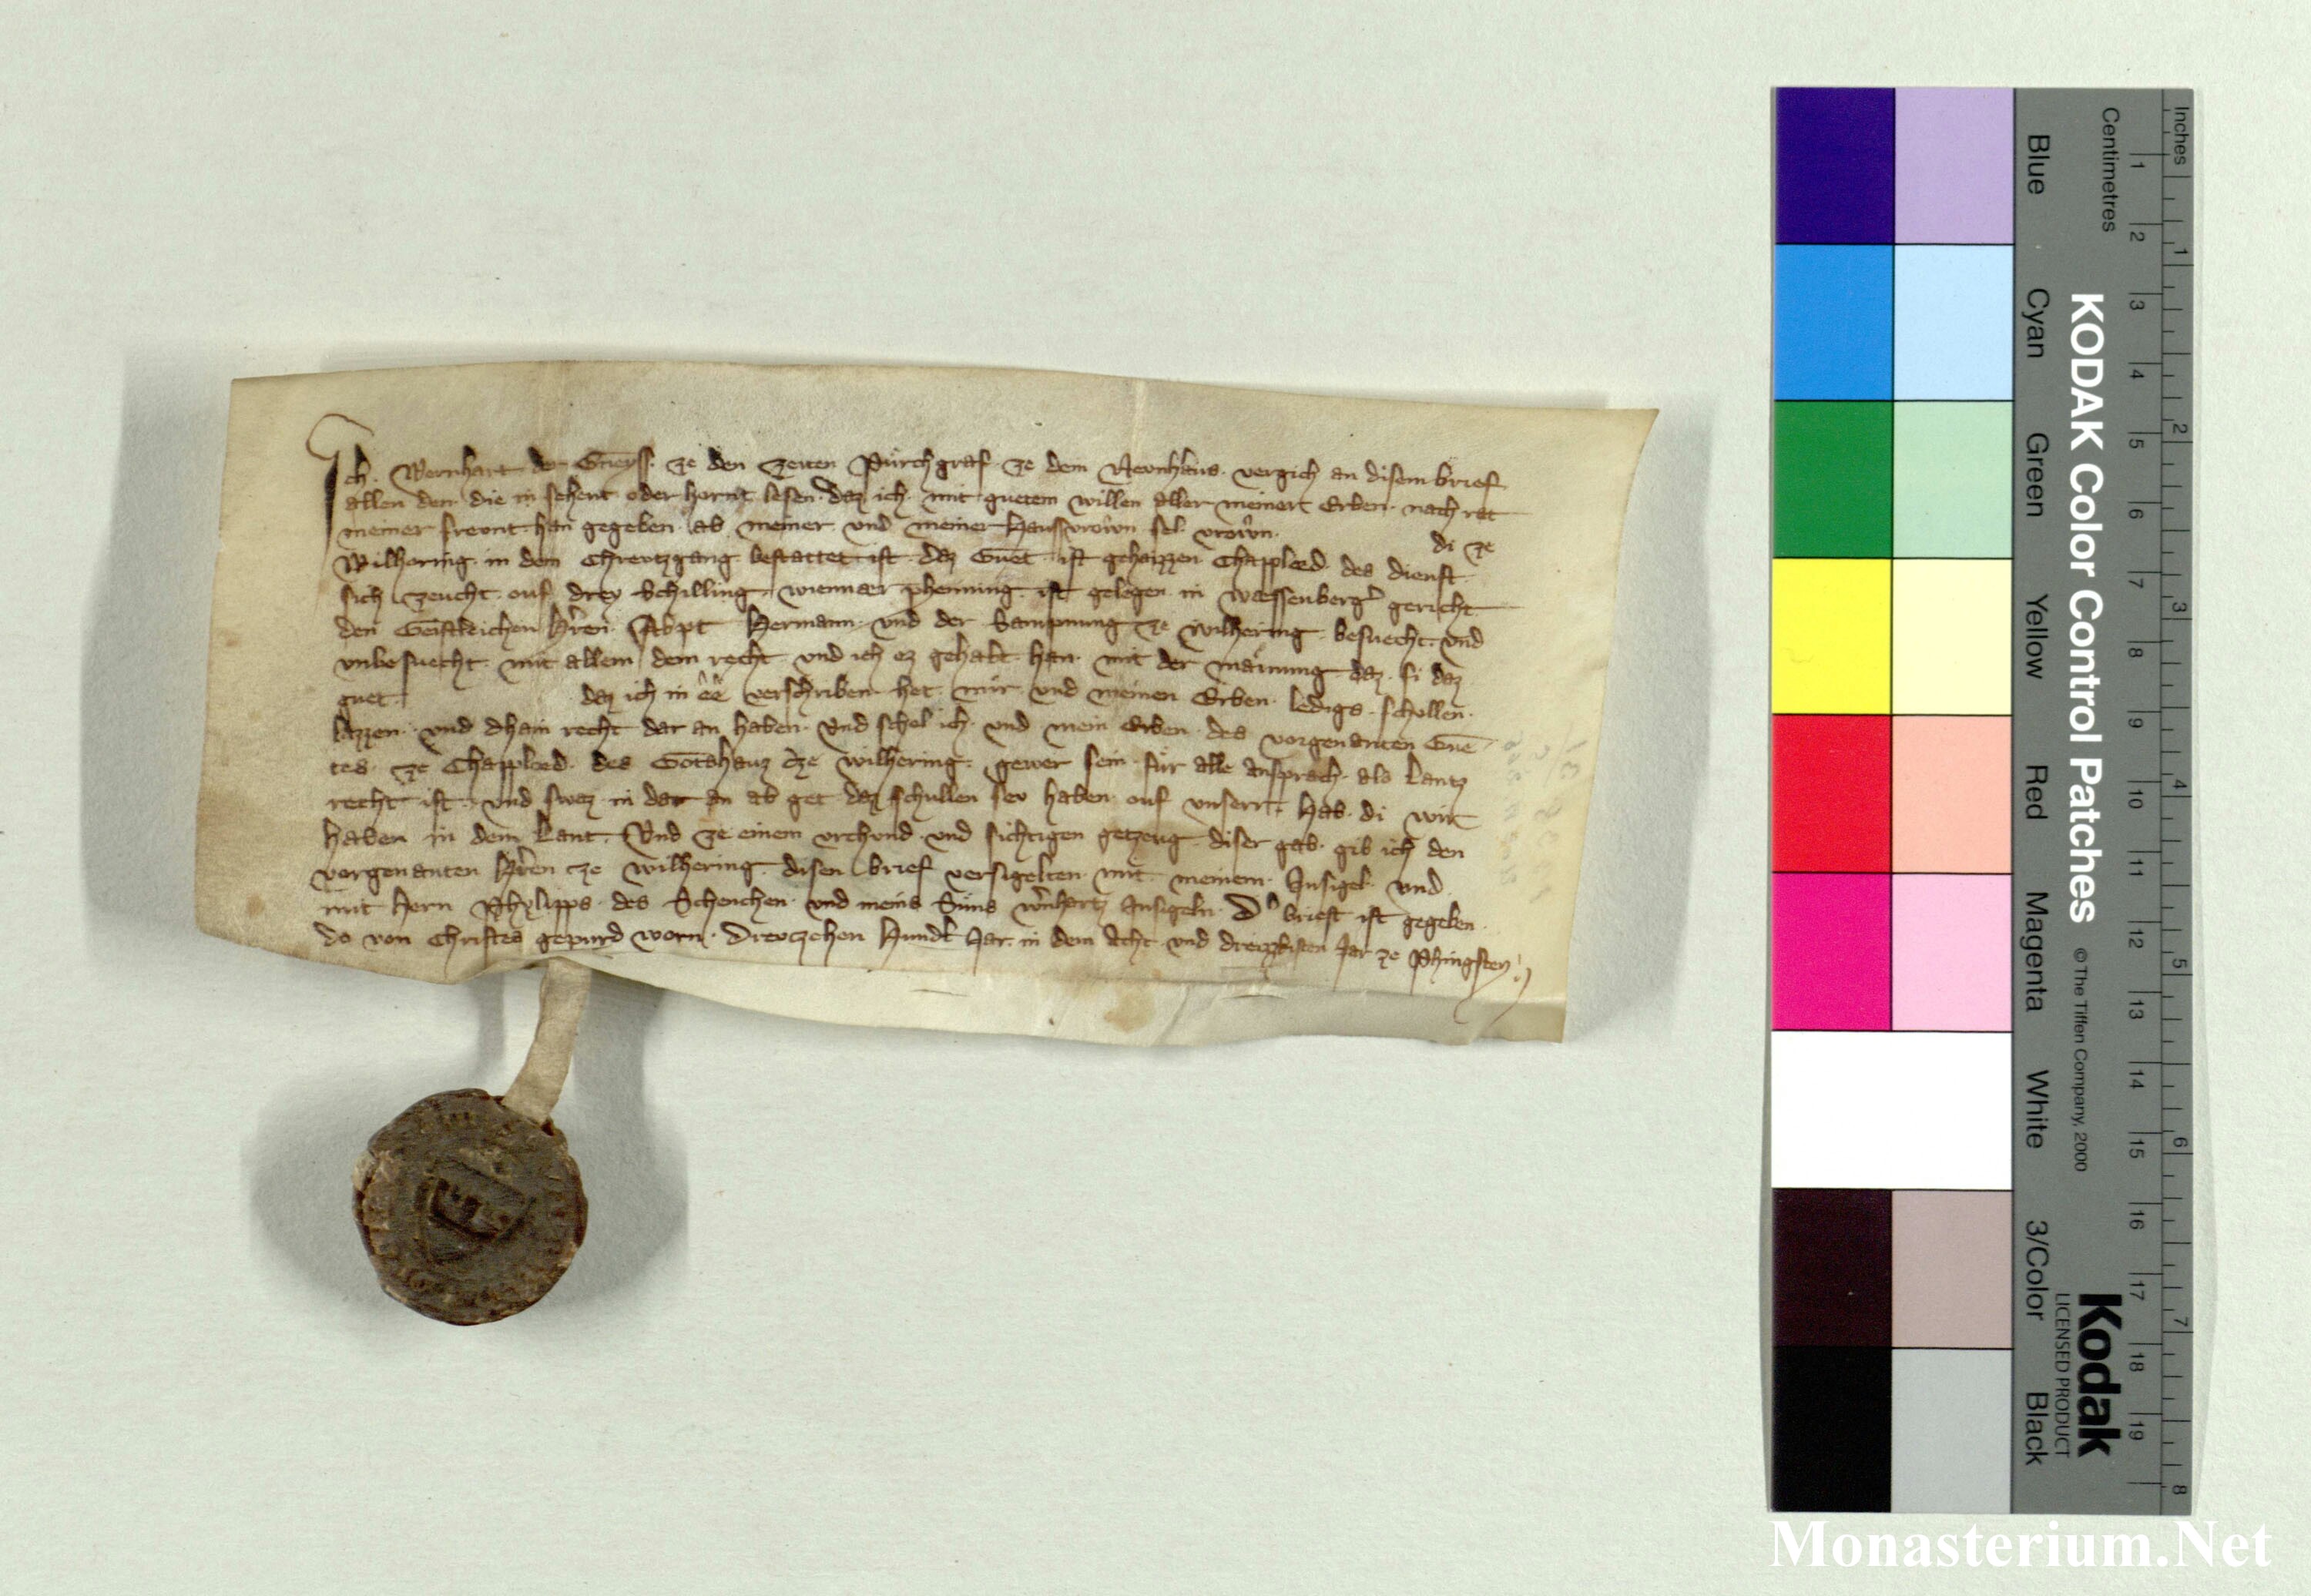 Ich. Wernhart der Gneyss. ze den zeiten Pürchgraf. ze dem Nevnhaus. vergich an disem brief.
allen den. die in sehent oder hornt lesen. daz ich. mit guetem willen aller meinert Erben. nach rat
meiner frevnt. han gegeben. ab. meiner. vnd meiner Hausvrown. sel. vrown. di ze
Wilhering. in dem Chrevtzgang. bestattet ist. daz Guet. ist gehaizzen Chapploed. des dienst.
sich zeucht. ouf. drey Schilling. wienner phenning. ist gelegen. in waessenberger gericht
den Geistleichen Hren. Abpt Hermann. vnd der Sampnung ze Wilhering. besuecht. vnd
vnbesuecht. mit allem dem recht. vnd ich ez gehabt. han. mit der mainung. daz. si daz
guet. daz ich in ee verschriben. het. mir. vnd meinen Erben. ledigs. schullen.
lazzen. vnd dhain recht dar an haben. Vnd schol ich. vnd mein Erben. des vorgenanten Gue
tes. ze Chapploed. des Gotshauz. ze Wilhering. gewer sein. für alle ansprach. als Lantz
recht ist. vnd swaz. in dar an ab get. daz schullen sev haben. ouf vnserr. Hab. di wir
haben in dem Lant. Vnd ze einem vrchund. vnd sichtigen getzeug. diser gab. gib ich den
vorgenanten Hren ze Wilhering. disen brief versigelten. mit meinem. Insigel. vnd
mit Hern Phylipps. des Schenchen. vnd meins Süns Wernhartz Insigeln. Der brief ist gegeben.
do von Christes gepurd worn. Drevczehen Hundt Jar. in dem Acht. vnd dreizzkisten Jar ze Phingsten.
Inches
Centimetres
KODAK Color Control Patches
© The Tiffen Company, 2000
Kodak
LICENSED PRODUCT
Blue Cyan Green Yellow Red Magenta White 3/Color Black
1 2 3 4 5 6 7 8 9 10 11 12 13 14 15 16 17 18 19
1 2 3 4 5 6 7 8
Monasterium.Net